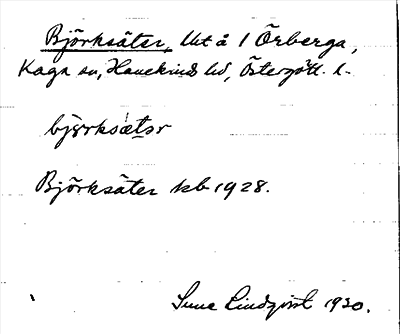 Björksäter, Ut å 1 Örberga,
Kaga sn, Hanekinds hd, Östergötl. l.
björksä̀tər
Björksäter kb 1928.
Sune Lindqvist 1930.